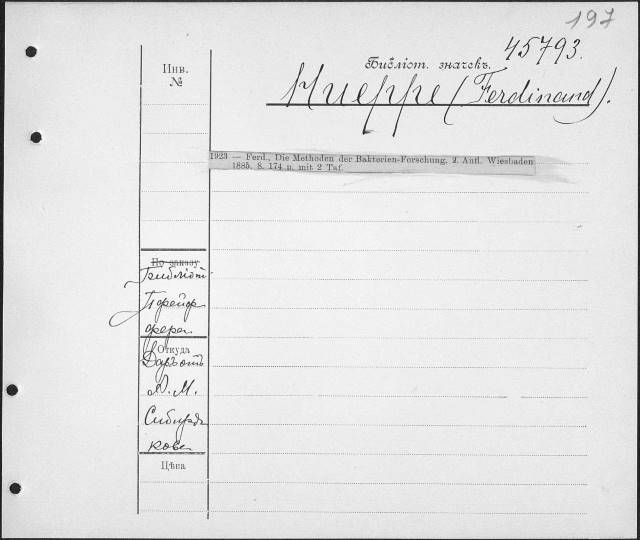 197
45793.
Библіот. значекъ.
Hueppe (Ferdinand).
Инв.
№
1923 — Ferd., Die Methoden der Bakterien-Forschung. 2. Aufl. Wiesbaden
1885. 8. 174 p. mit 2 Taf.
По заказу
Библіот.
Пфейф
фера
Откуда
Даръ отъ
А. М.
Сибиряк
кова
Цѣна